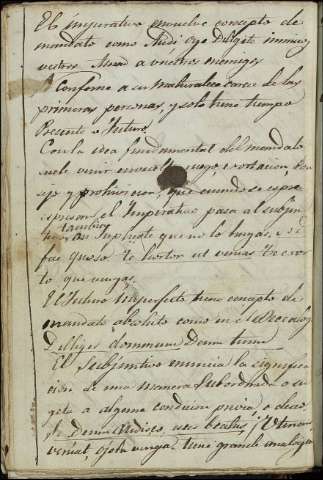 El imperativo envuelve concepto de
mandato como Audi, oye Diligite inimicos
vestros Amad a vuestros enemigos
Conforme a su naturaleza carece de las
primeras personas, y solo tiene tiempo
Presente o futuro.
Con la idea fundamental del mandato
suele venir envuelto ruego, exortacion, con
sejo y prohivicion, que cuando se espre
espresan el Imperativo pasa al subjun
tambien
que no lo hagas, o si
te hortor ut venias te exorto
to que vengas.
El Futuro Imperfecto tiene concepto de
mandato absoluto como en el Decalogo
Diliges Dominum Deum tuum
El Subjuntivo enuncia la significa
cion de una manera subordinada o su
geta a alguna condicion previa o deseo,
Si Deum audisses, esses beatus, Utinam
veniat, ojala venga tiene grande analogia